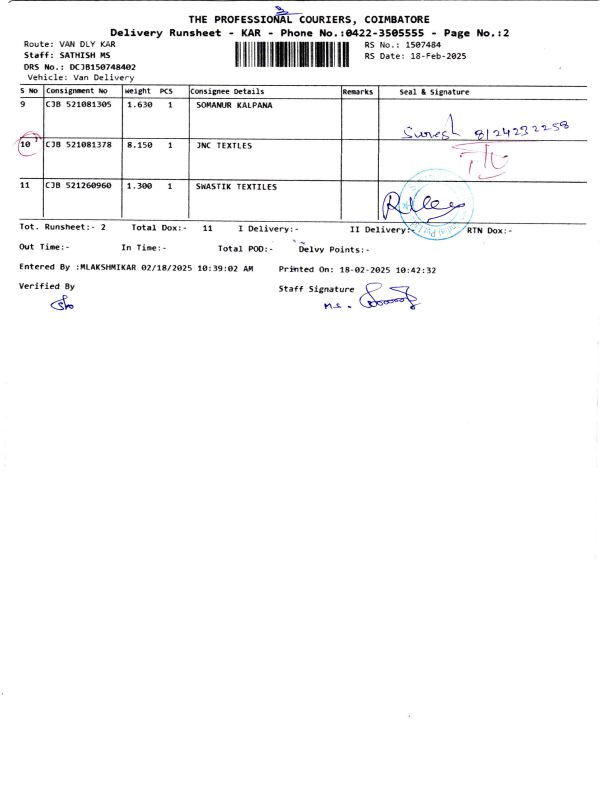 THE PROFESSIONAL COURIERS, COIMBATORE
Delivery Runsheet - KAR - Phone No.:0422-3505555 - Page No.:2
Route: VAN DLY KAR RS No.: 1507484
Staff: SATHISH MS RS Date: 18-Feb-2025
DRS No.: DCJB150748402
Vehicle: Van Delivery
S No Consignment No Weight PCS Consignee Details Remarks Seal & Signature
9 CJB 521081305 1.630 1 SOMANUR KALPANA
Suresh 8124232258
10 CJB 521081378 8.150 1 JNC TEXTLES
11 CJB 521260960 1.300 1 SWASTIK TEXTILES
Tot. Runsheet:- 2 Total Dox:- 11 I Delivery:- II Delivery:- RTN Dox:-
Out Time:- In Time:- Total POD:- Delvy Points:-
Entered By :MLAKSHMIKAR 02/18/2025 10:39:02 AM Printed On: 18-02-2025 10:42:32
Verified By Staff Signature
M.S.